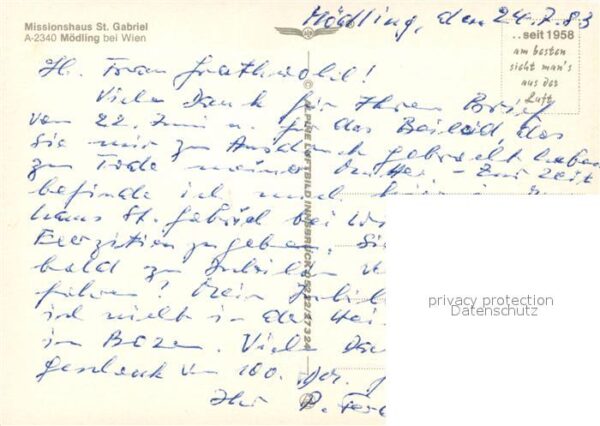 Missionshaus St. Gabriel
A-2340 Mödling bei Wien
Mödling, den 24.7.83
..seit 1958
am besten
sieht man's
aus der
Luft
Frau
Viele Dank für Ihren Brief
vom 22. Juni u. für das Beileid, das
Sie mir zu Ausdruck gebracht haben
zum Tode meiner Mutter. – Zur Zeit
befinde ich mich
haus St. Gabriel bei
Exerzitien zu geben. Sie
bald zu
fahren? Mein
ich nicht in der Hei
in Bozen. Viele
geschenk von 100.
Ihr P.
ALPINE LUFTBILD INNSBRUCK
privacy protection
Datenschutz